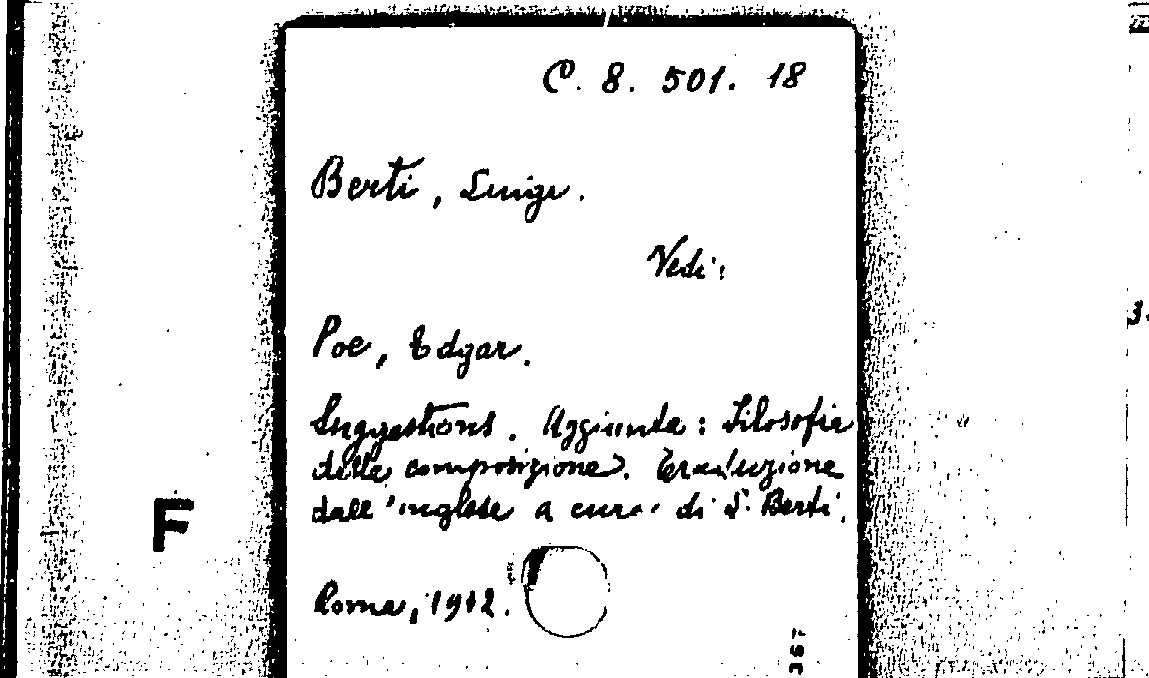 C. 8. 501. 18
Berti, Luigi.
Vedi:
Poe, Edgar.
Suggestions. Aggiunta: Filosofia
della composizione. Traduzione
dall'inglese a cura di L. Berti.
F
Roma, 1942.
367
3.